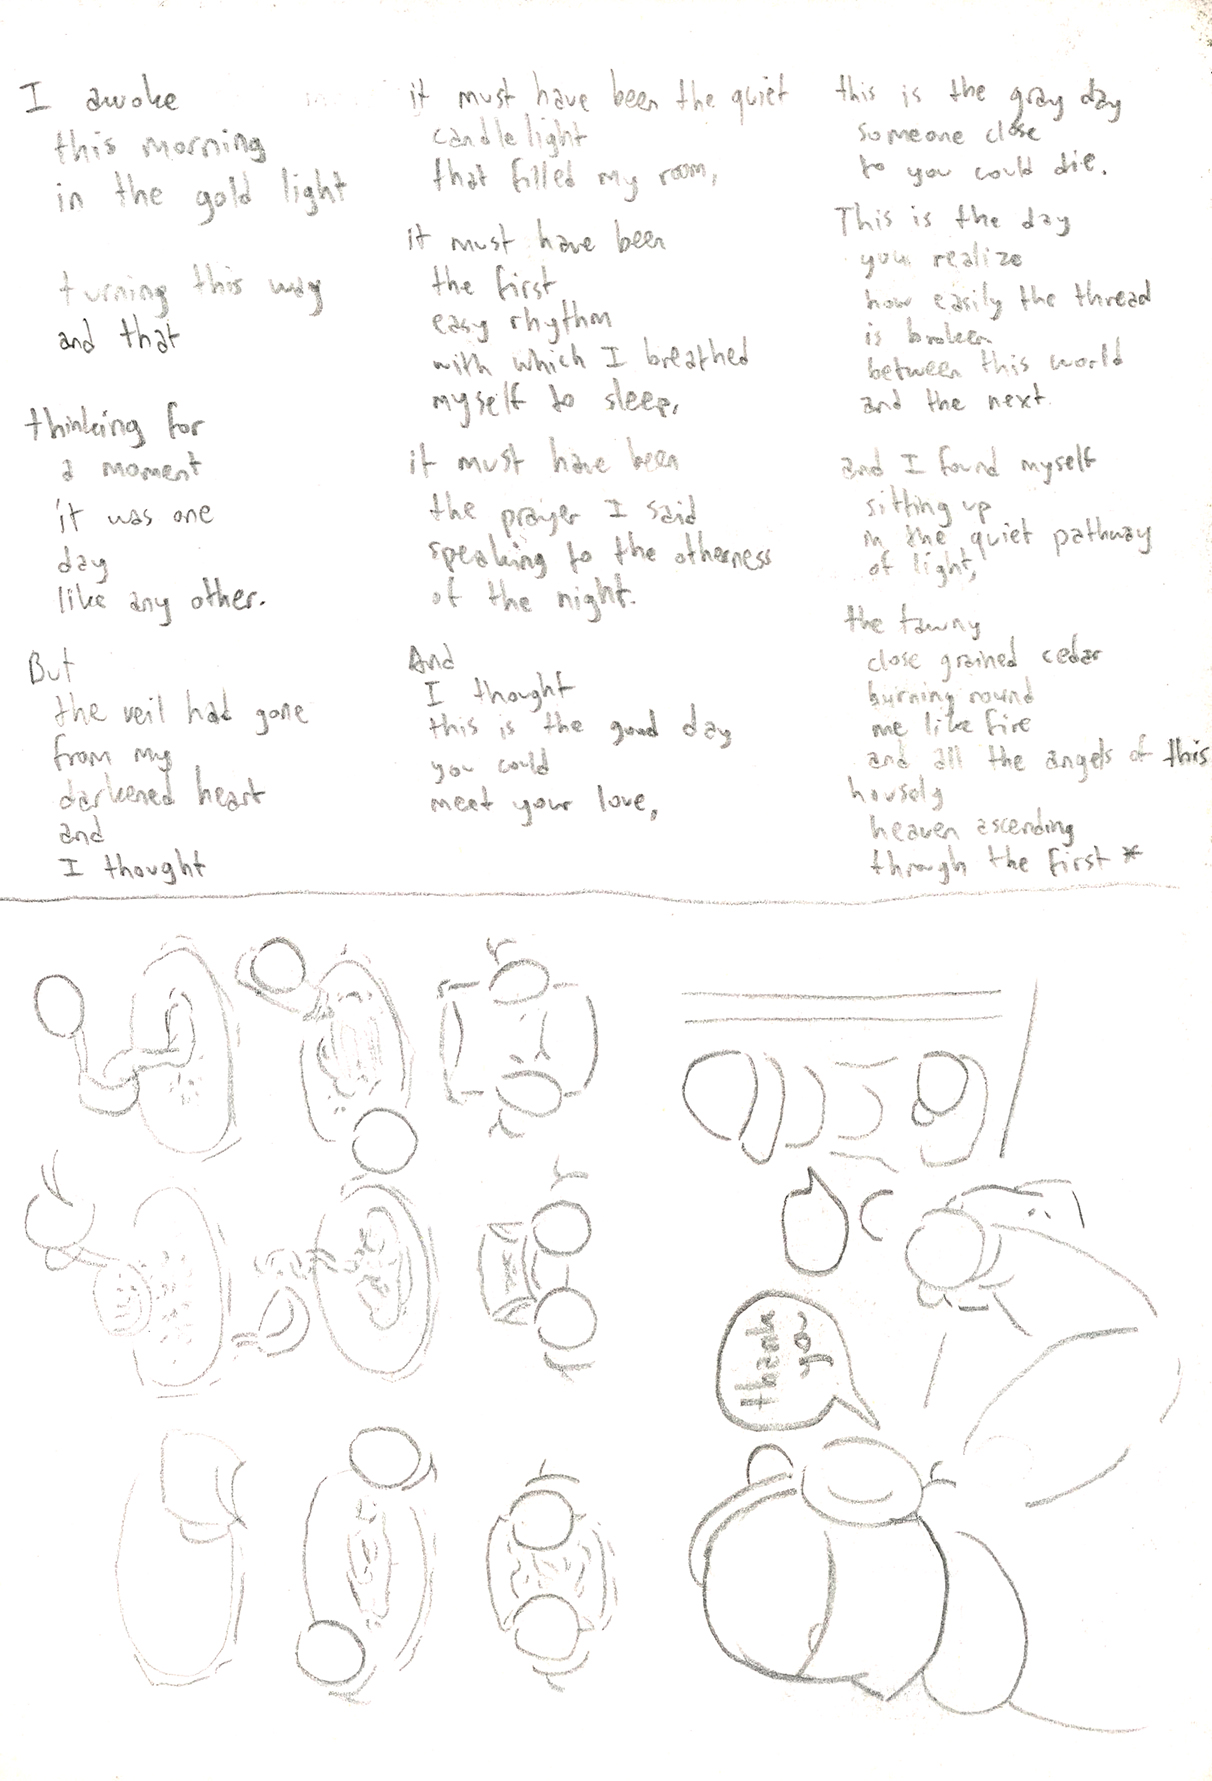 I awoke
this morning
in the gold light
turning this way
and that
thinking for
a moment
it was one
day
like any other.
But
the veil had gone
from my
darkened heart
and
I thought
it must have been the quiet
candle light
that filled my room,
it must have been
the first
easy rhythm
with which I breathed
myself to sleep,
it must have been
the prayer I said
speaking to the otherness
of the night.
And
I thought
this is the good day
you could
meet your love,
this is the gray day
someone close
to you could die.
This is the day
you realize
how easily the thread
is broken
between this world
and the next
and I found myself
sitting up
in the quiet pathway
of light,
the tawny
close grained cedar
burning round
me like fire
and all the angels of this
housely
heaven ascending
through the first *
thank
you